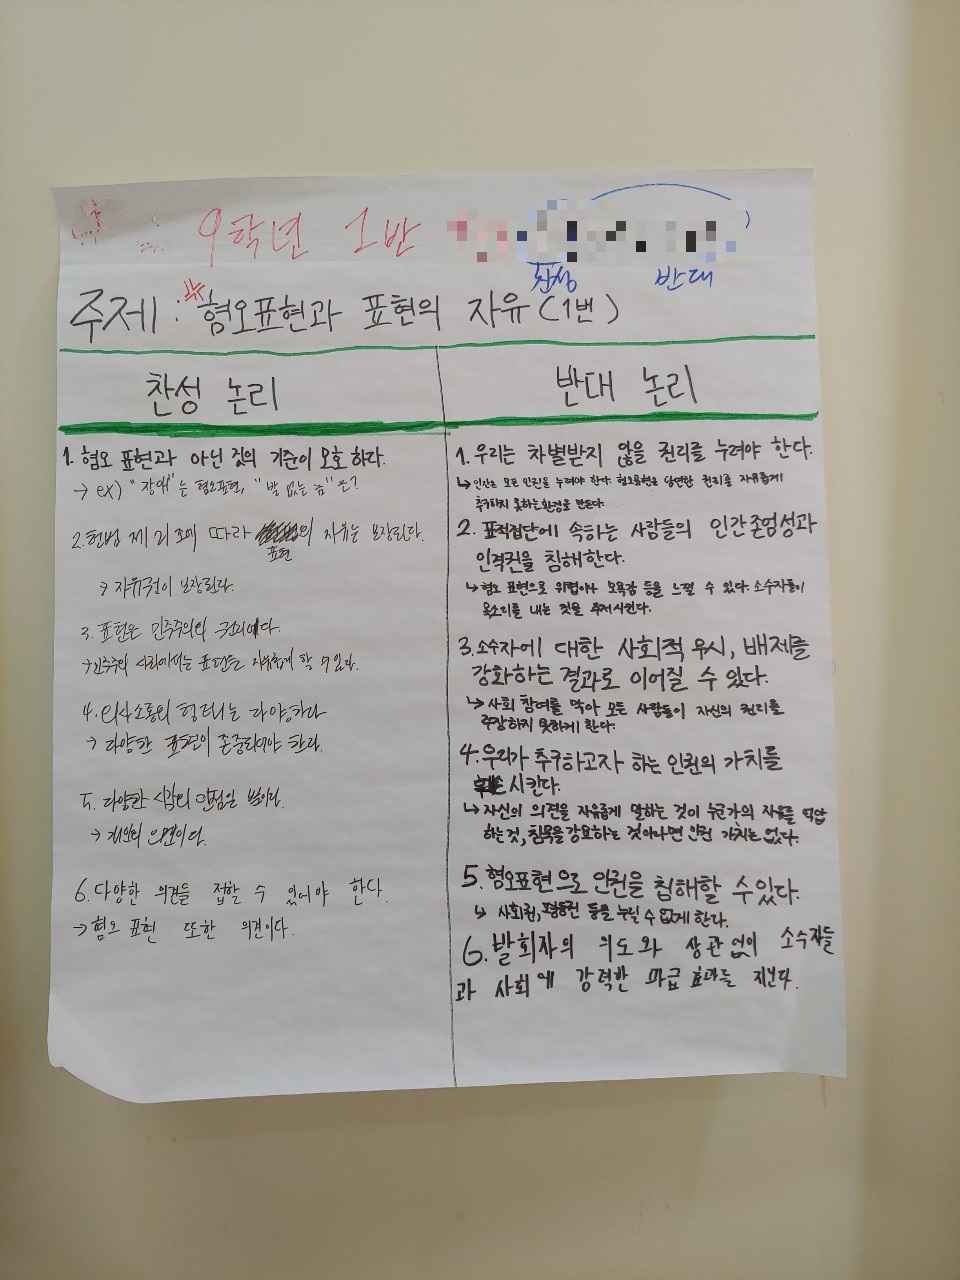 9학년 1반
찬성 반대
주제: 혐오표현과 표현의 자유(1번)
찬성 논리
1. 혐오 표현과 아닌 것의 기준이 모호 하다.
→ ex) "장애"는 혐오표현, "발 없는 놈"은?
2. 헌법 제21조에 따라 표현의 자유는 보장된다.
→ 자유권이 보장된다.
3. 표현은 민주주의의 권리이다.
→ 민주주의 사회에서는 표현을 자유롭게 할 수 있다.
4. 의사소통의 형태는 다양하다
→ 다양한 표현이 존중되어야 한다.
5. 다양한 시각의 관점을 보이다.
→ 개인의 의견이다.
6. 다양한 의견을 접할 수 있어야 한다.
→ 혐오 표현 또한 의견이다.
반대 논리
1. 우리는 차별받지 않을 권리를 누려야 한다.
↳ 인간은 모든 인권을 누려야 한다. 혐오표현은 당연한 권리를 자유롭게
추구하지 못하는 환경을 만든다.
2. 표적집단에 속하는 사람들의 인간존엄성과
인격권을 침해한다.
↳ 혐오 표현으로 위협이나 모욕감 등을 느낄 수 있다. 소수자들이
목소리를 내는 것을 주저시킨다.
3. 소수자에 대한 사회적 무시, 배제를
강화하는 결과로 이어질 수 있다.
↳ 사회 참여를 막아 모든 사람들이 자신의 권리를
주장하지 못하게 한다.
4. 우리가 추구하고자 하는 인권의 가치를
시킨다.
↳ 자신의 의견을 자유롭게 말하는 것이 누군가의 자유를 억압
하는 것, 침묵을 강요하는 것이라면 인권 가치는 없다.
5. 혐오표현으로 인권을 침해할 수 있다.
↳ 사회권, 평등권 등을 누릴 수 없게 한다.
6. 발화자의 의도와 상관없이 소수자들
과 사회에 강력한 파급 효과를 지닌다.